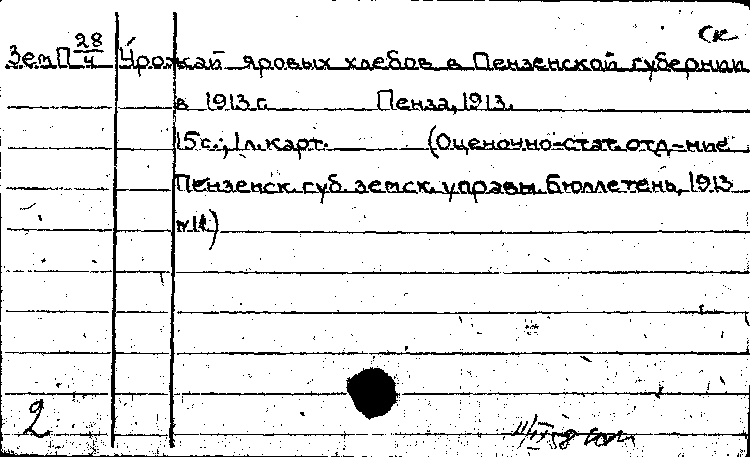 Ск
ЗемП 28/4 Урожай яровых хлебов в Пензенской губернии
в 1913 г. Пенза, 1913.
15 с.; 1 л. карт. (Оценочно-стат. отд-ние
Пензенск. губ. земск. управы. Бюллетень, 1913
№11)
2